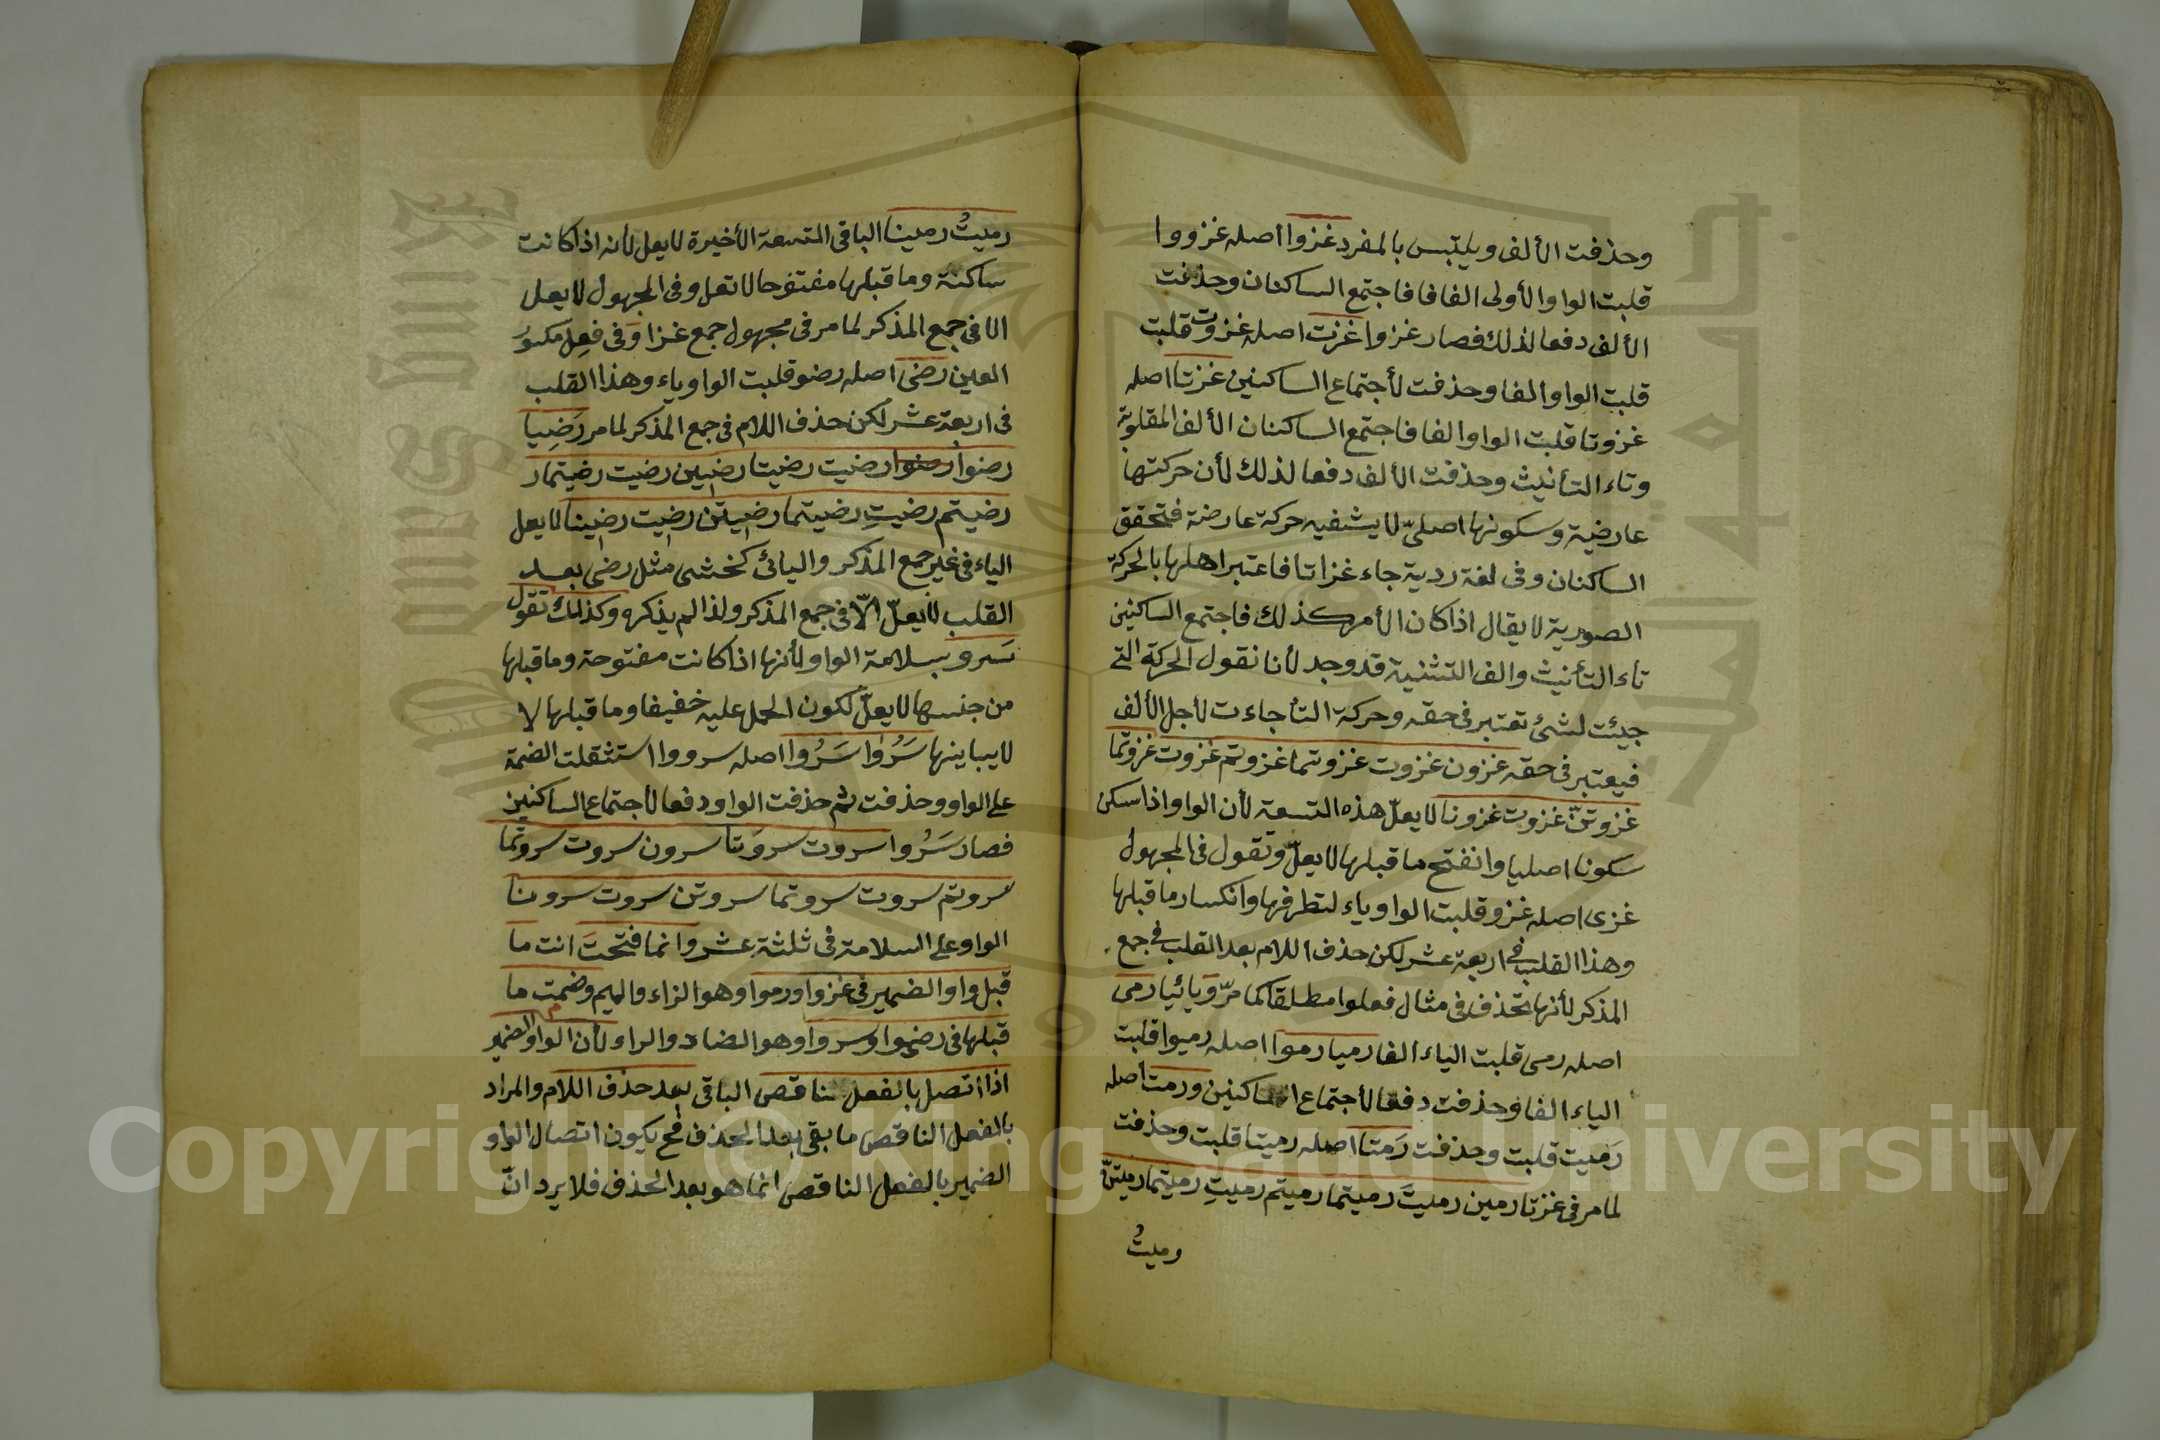 وحذفت الألف ويلتبس بالمفرد غزوا اصله غزووا
قلبت الواو الأولى الفا فاجتمع الساكنان وحذفت
الألف دفعا لذلك فصار غزوا غزت اصله غزوت قلبت
قلبت الواو الفا وحذفت لأجتماع الساكنين غزتا اصله
غزوتا قلبت الواو الفا فاجتمع الساكنان الألف المقلوبة
وتاء التأنيث وحذفت الألف دفعا لذلك لأن حركتها
عارضية وسكونها اصليّ لا يشفيه حركة عارضة فتحقق
الساكنان وفى لغة ردية جاء غزاتا فاعتبر اهلها بالحركة
الصورية لا يقال اذا كان الأمر كذلك فاجتمع الساكنين
تاء التأنيث والف التثنية قد وجد لأنا نقول الحركة التى
جيئت لشئ تعتبر فى حقه وحركة التأ جاءت لأجل الألف
فيعتبر فى حقه غزون غزوت غزوتما غزوتم غزوت غزوتما
غزوتنّ غزوت غزونا لا يعلّ هذه التسعة لأن الواو اذا سكن
سكونا اصليا وانفتح ما قبلها لا يعلّ وتقول فى المجهول
غزى اصله غزو قلبت الواو ياء لتطرفها وانكسار ما قبلها
وهذا القلب فى اربعة عشر لكن حذف اللام بعد القلب فى جمع
المذكر لأنها تحذف فى مثال فعلوا مطلقا كما مرّ ويائيا رمى
اصله رمى قلبت الياء الفا رميا رموا اصله رميوا قلبت
الياء الفا وحذفت دفعا لأجتماع الساكنين ورمت اصله
رَميت قلبت وحذفت رَمتا اصله رميتا قلبت وحذفت
لما مر فى غزتا رمين رميتَ رميتما رميتم رميتِ رميتما رميتنّ
رميتُ
رميتُ رمينا الباقى التسعة الأخيرة لا يعل لأنه اذا كانت
ساكنة وما قبلها مفتوحا لا تعل وفى المجهول لا يعل
الا فى جمع المذكر لما مر فى مجهول جمع غزا وَفى فعِل مكسورُ
العين رضى اصله رضو قلبت الواو ياء وهذا القلب
فى اربعة عشر لكن حذف اللام فى جمع المذكر لما مر رَضِيا
رضوا رضوا رضيت رضيتا رضيين رضيت رضيتما ر
رضيتم رضيتِ رضيتما رضيتن رضيت رضينا لا يعل
الياء فى غير جمع المذكر واليائى كخشى مثل رضى بعد
القلب لا يعلّ الّا فى جمع المذكر ولذا لم يذكره وكذلك تقول
سَرو بسلامة الواو لأنها اذا كانت مفتوحة وما قبلها
من جنسها لا يعلّ لكون الحمل عليه خفيفا وما قبلها لا
لا يباينها سَرُوا سَرُوا اصله سرووا استثقلت الضمة
على الواو وحذفت ثم حذفت الواو دفعا لأجتماع الساكنين
فصار سَرُوا سروت سروَتا سرون سروت سروتما
سروتم سروت سروتما سروتن سروت سرونا
الواو على السلامة فى ثلثة عشر وانما فتحتَ انت ما
قبل واو الضمير فى غزوا ورموا وهو الزاء والميم وضمت ما
قبلها فى رضوا وسروا وهو الضاد والراء لأن الواو الضمير
اذا اتصل بالفعل الناقص الباقى بعد حذف اللام والمراد
بالفعل الناقص ما بقى بعد الحذف فح يكون اتصال الواو
الضمير بالفعل الناقص انما هو بعد الحذف فلا يرد انّ
Copyright © King Saud University